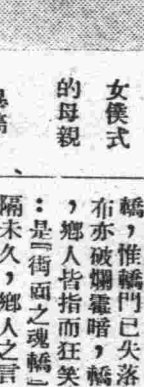 女僕式
的母親
轎，惟轎門已失落
布亦破爛霾暗，轎
，鄉人皆指而狂笑
：是『街面之魂轎』
隔未久，鄉人之言